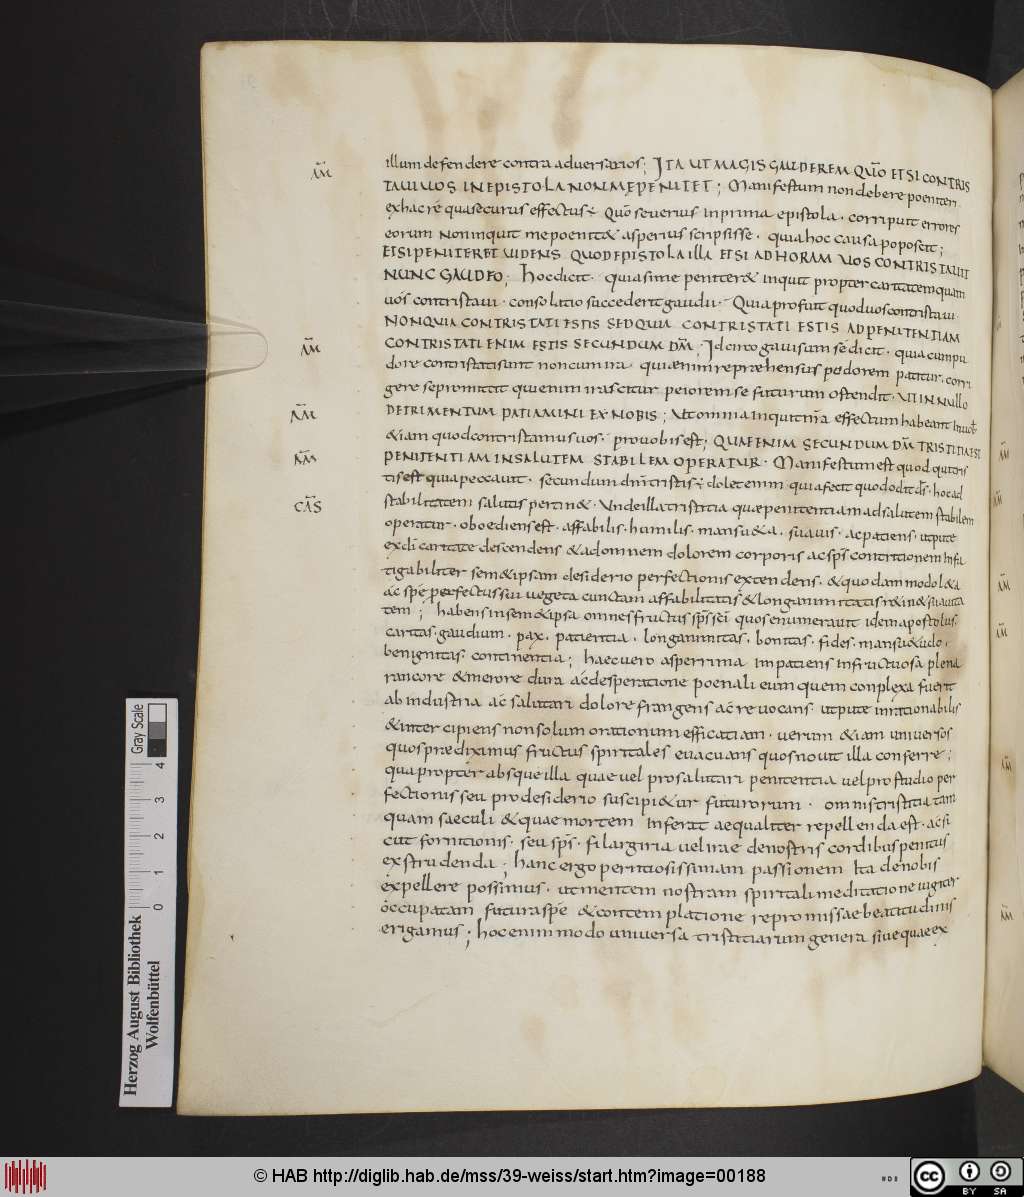 illum defendere contra adversarios; ITA UT MAGIS GAUDEREM QUŌ ETSI CONTRIS
TAUI UOS IN EPISTOLA NON ME PENITET; Manifestum non debere poeniteri
ex hac rē qua securus effectus ē Quō severius in prima epistola · corripuit errores
eorum Non inquit me poenit& asperius scripsisse · quia hoc causa poposcit;
ETSI PENITERET UIDENS QUOD EPISTOLA ILLA ETSI AD HORAM UOS CONTRISTAUIT
NUNC GAUDEO; Hoc dicit · quia si me peniter& inquit propter caritatem quam
uos contristaui · consolatio succederit gaudii · Quia profuit quod uos contristaui
NON QUIA CONTRISTATI ESTIS SED QUIA CONTRISTATI ESTIS AD PENITENTIAM
CONTRISTATI ENIM ESTIS SECUNDUM DM̄; Idcirco gauisum se dicit · quia cum pu
dore contristati sunt non cum ira · qui enim repraehensus pudorem patitur · corri
gere se promittit qui enim irascitur peiorem se futurum ostendit · UT IN NULLO
DETRIMENTUM PATIAMINI EX NOBIS; Ut omnia inquit nr̄a effectum habeant in uob̄
&iam quod contristamus uos · pro uobis est; QUAE ENIM SECUNDUM DM̄ TRISTITIA EST
PENITENTIAM IN SALUTEM STABILEM OPERATUR · Manifestum est quod qui tris
tis est quia peccauit · secundum dnī tristis ē dolet enim quia fecit quod odit ds̄ · hoc ad
stabilitatem salutis pertin& · Unde illa tristitia quae penitentiam ad salutem stabilem
operatur · oboediens est · affabilis · humilis · mansu&a · suauis · ac patiens utpute
ex dī caritate descendens &ad omnem dolorem corporis ac sps̄ contritionem infa
tigabiliter sem&ipsam desiderio perfectionis extendens · &quodammodo l&a
ac spē perfectus sui uegeta cunctam affabilitatis &longanimitatis r&in& suauita
tem; habens in sem&ipsa omnes fructus sps̄ scī quos enumerauit idem apostolus ·
caritas · gaudium · pax · patientia · longanimitas · bonitas · fides · mansu&udo ·
benignitas · continentia; haec uero asperrima impatiens infructuosa plena
rancore &merore dura ac desperatione poenali eum quem conplexa fuerit
ab industria ac salutari dolore frangens ac reuocans · utpute inrationabilis
&intercipiens non solum orationum efficatiam · uerum &iam uniuersos
quos praediximus fructus spiritales euacuans quos nouit illa conferre;
qua propter absque illa quae uel pro salutari penitentia uel pro studio per
fectionis seu pro desiderio suscipi&ur futurorum · omnis tristitia tam
quam saeculi &quae mortem inferat aequaliter repellenda est · ac si
cut fornitionis · seu sps̄ · filargiria uel irae de nostris cordibus penitus
exstrudenda; hanc ergo pernitiosissimam passionem ita de nobis
expellere possimus · ut mentem nostram spiritali meditatione iugiter
occupatam futura spē &contemplatione repromissae beatitudinis
erigamus; hoc enim modo uniuersa tristitiarum genera siue quae ex
AM̄
AM̄
AM̄
AM̄
CĀS
AM̄
AM̄
AM̄
AM̄
AM̄
AM̄
Herzog August Bibliothek
Wolfenbüttel
0 1 2 3 4
Gray Scale
© HAB http://diglib.hab.de/mss/39-weiss/start.htm?image=00188
cc BY SA